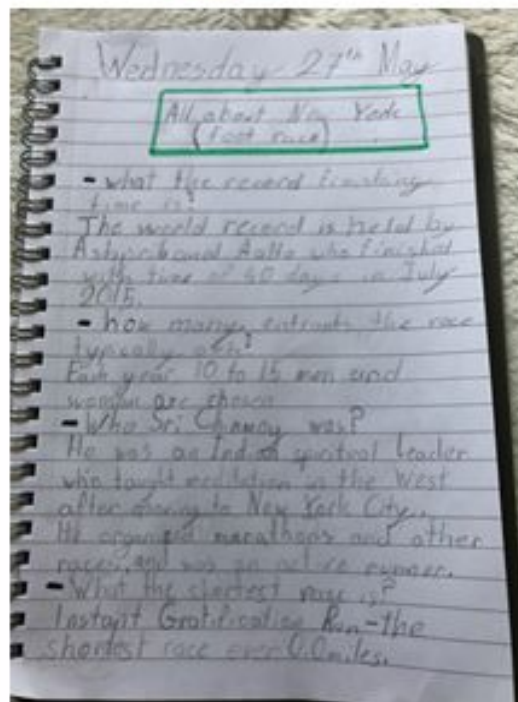 Wednesday 27th May
All about New York
(foot race)
- what the record finishing
time is?
The world record is held by
Ashprihanal Aalto who finished
with time of 40 days in July
2015.
- how many entrants the race
typically gets?
Each year 10 to 15 men and
women are chosen
- Who Sri Chinmoy was?
He was an Indian spiritual leader
who taught meditation in the West
after moving to New York City.
He organized marathons and other
races, and was an active runner.
- What the shortest race is?
Instant Gratification Run - the
shortest race ever 0.0 miles.